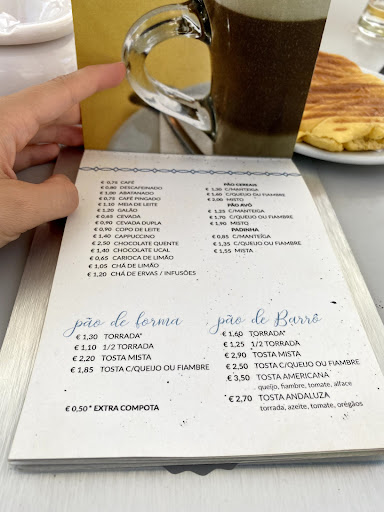 € 0,75 CAFÉ
€ 0,80 DESCAFEINADO
€ 1,00 ABATANADO
€ 0,75 CAFÉ PINGADO
€ 1,10 MEIA DE LEITE
€ 1,20 GALÃO
€ 0,65 CEVADA
€ 0,90 CEVADA DUPLA
€ 0,90 COPO DE LEITE
€ 1,40 CAPPUCCINO
€ 2,50 CHOCOLATE QUENTE
€ 1,40 CHOCOLATE UCAL
€ 0,65 CARIOCA DE LIMÃO
€ 1,05 CHÁ DE LIMÃO
€ 1,20 CHÁ DE ERVAS / INFUSÕES
PÃO CEREAIS
€ 1,30 C/MANTEIGA
€ 1,80 C/QUEIJO OU FIAMBRE
€ 2,00 MISTO
PÃO AVÓ
€ 1,25 C/MANTEIGA
€ 1,70 C/QUEIJO OU FIAMBRE
€ 1,90 MISTO
PADINHA
€ 0,85 C/MANTEIGA
€ 1,35 C/QUEIJO OU FIAMBRE
€ 1,55 MISTA
pão de forma
€ 1,30 TORRADA*
€ 1,10 1/2 TORRADA
€ 2,20 TOSTA MISTA
€ 1,85 TOSTA C/QUEIJO OU FIAMBRE
€ 0,50 * EXTRA COMPOTA
pão de Barrô
€ 1,60 TORRADA*
€ 1,25 1/2 TORRADA
€ 2,90 TOSTA MISTA
€ 2,50 TOSTA C/QUEIJO OU FIAMBRE
€ 3,50 TOSTA AMERICANA
queijo, fiambre, tomate, alface
€ 2,70 TOSTA ANDALUZA
torrada, azeite, tomate, orégãos